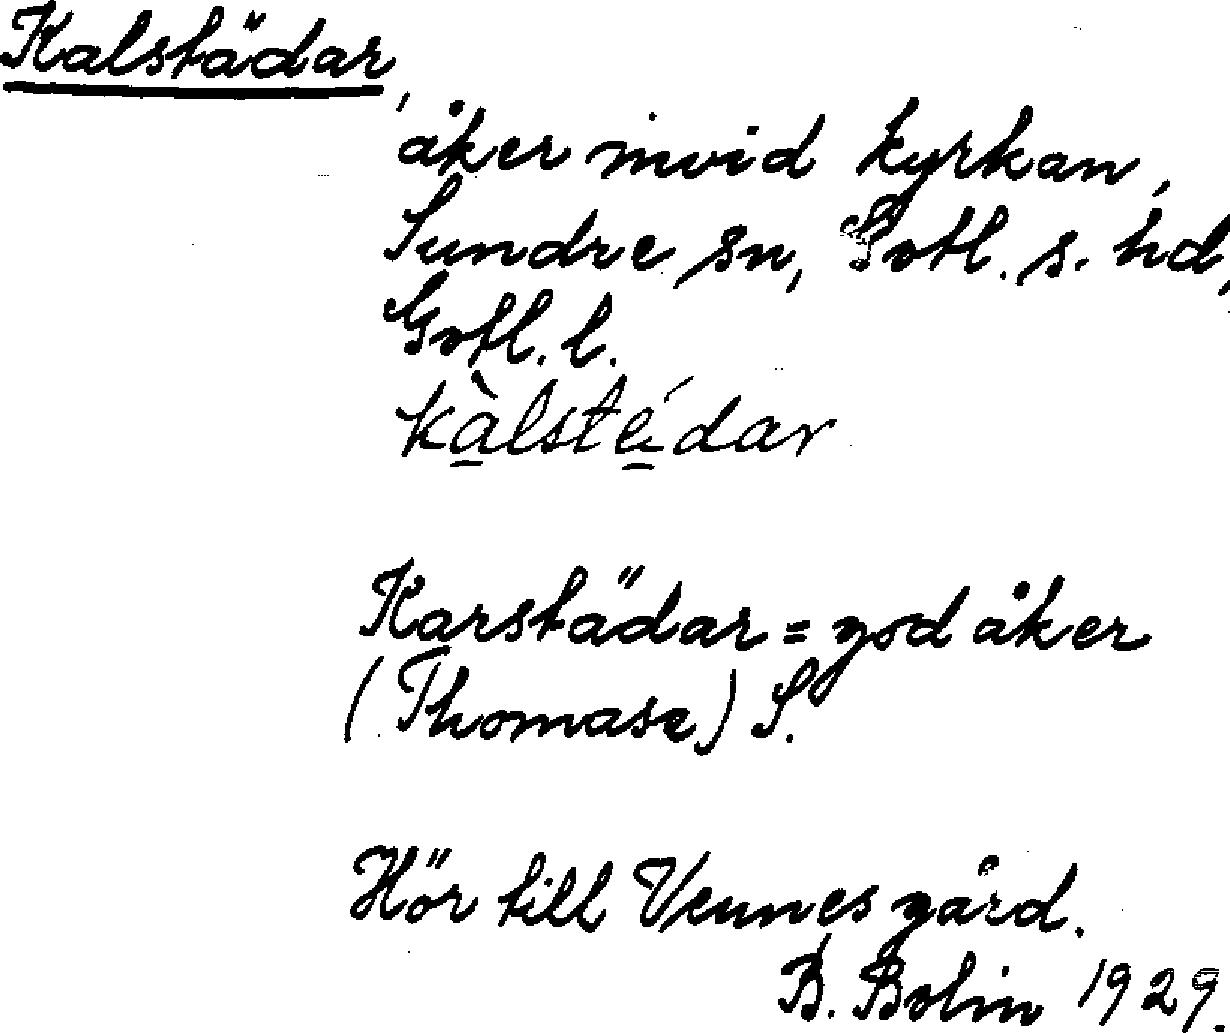 Kalstädar,
åker invid kyrkan,
Sundre sn, Gotl. s. hd,
Gotl. l.
kàlstédar
Karstädar = god åker
(Thomase) S.
Hör till Vennes gård.
B. Bolin 1929.